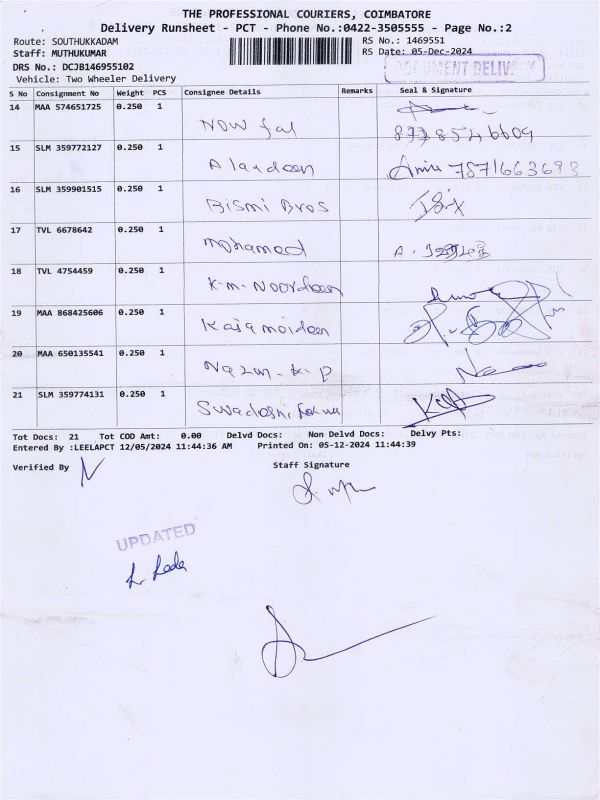 THE PROFESSIONAL COURIERS, COIMBATORE
Delivery Runsheet - PCT - Phone No.:0422-3505555 - Page No.:2
Route: SOUTHUKKADAM RS No.: 1469551
Staff: MUTHUKUMAR RS Date: 05-Dec-2024
DRS No.: DCJB146955102
Vehicle: Two Wheeler Delivery
S No Consignment No Weight PCS Consignee Details Remarks Seal & Signature
14 MAA 574651725 0.250 1
15 SLM 359772127 0.250 1
7871663693
16 SLM 359901515 0.250 1
Bismi Bros
17 TVL 6678642 0.250 1
mohamed
18 TVL 4754459 0.250 1
K.m. Noordeen
19 MAA 868425606 0.250 1
Kaja moideen
20 MAA 650135541 0.250 1
21 SLM 359774131 0.250 1
Tot Docs: 21 Tot COD Amt: 0.00 Delvd Docs: Non Delvd Docs: Delvy Pts:
Entered By :LEELAPCT 12/05/2024 11:44:36 AM Printed On: 05-12-2024 11:44:39
Verified By Staff Signature
UPDATED